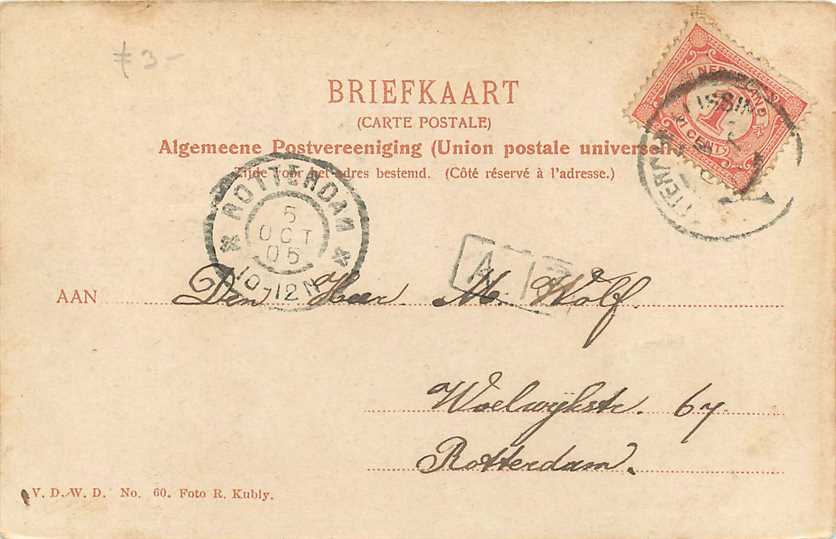 ƒ 3-
BRIEFKAART
(CARTE POSTALE)
Algemeene Postvereeniging (Union postale universelle)
Zijde voor het adres bestemd. (Côté réservé à l'adresse.)
NEDERLAND
1
CENT
ROTTERDAM
5
OCT
05
10-12N
AAN Den Heer M. Wolf.
Woelwijkstr. 67
Rotterdam.
V. D. W. D. No. 60. Foto R. Kubly.